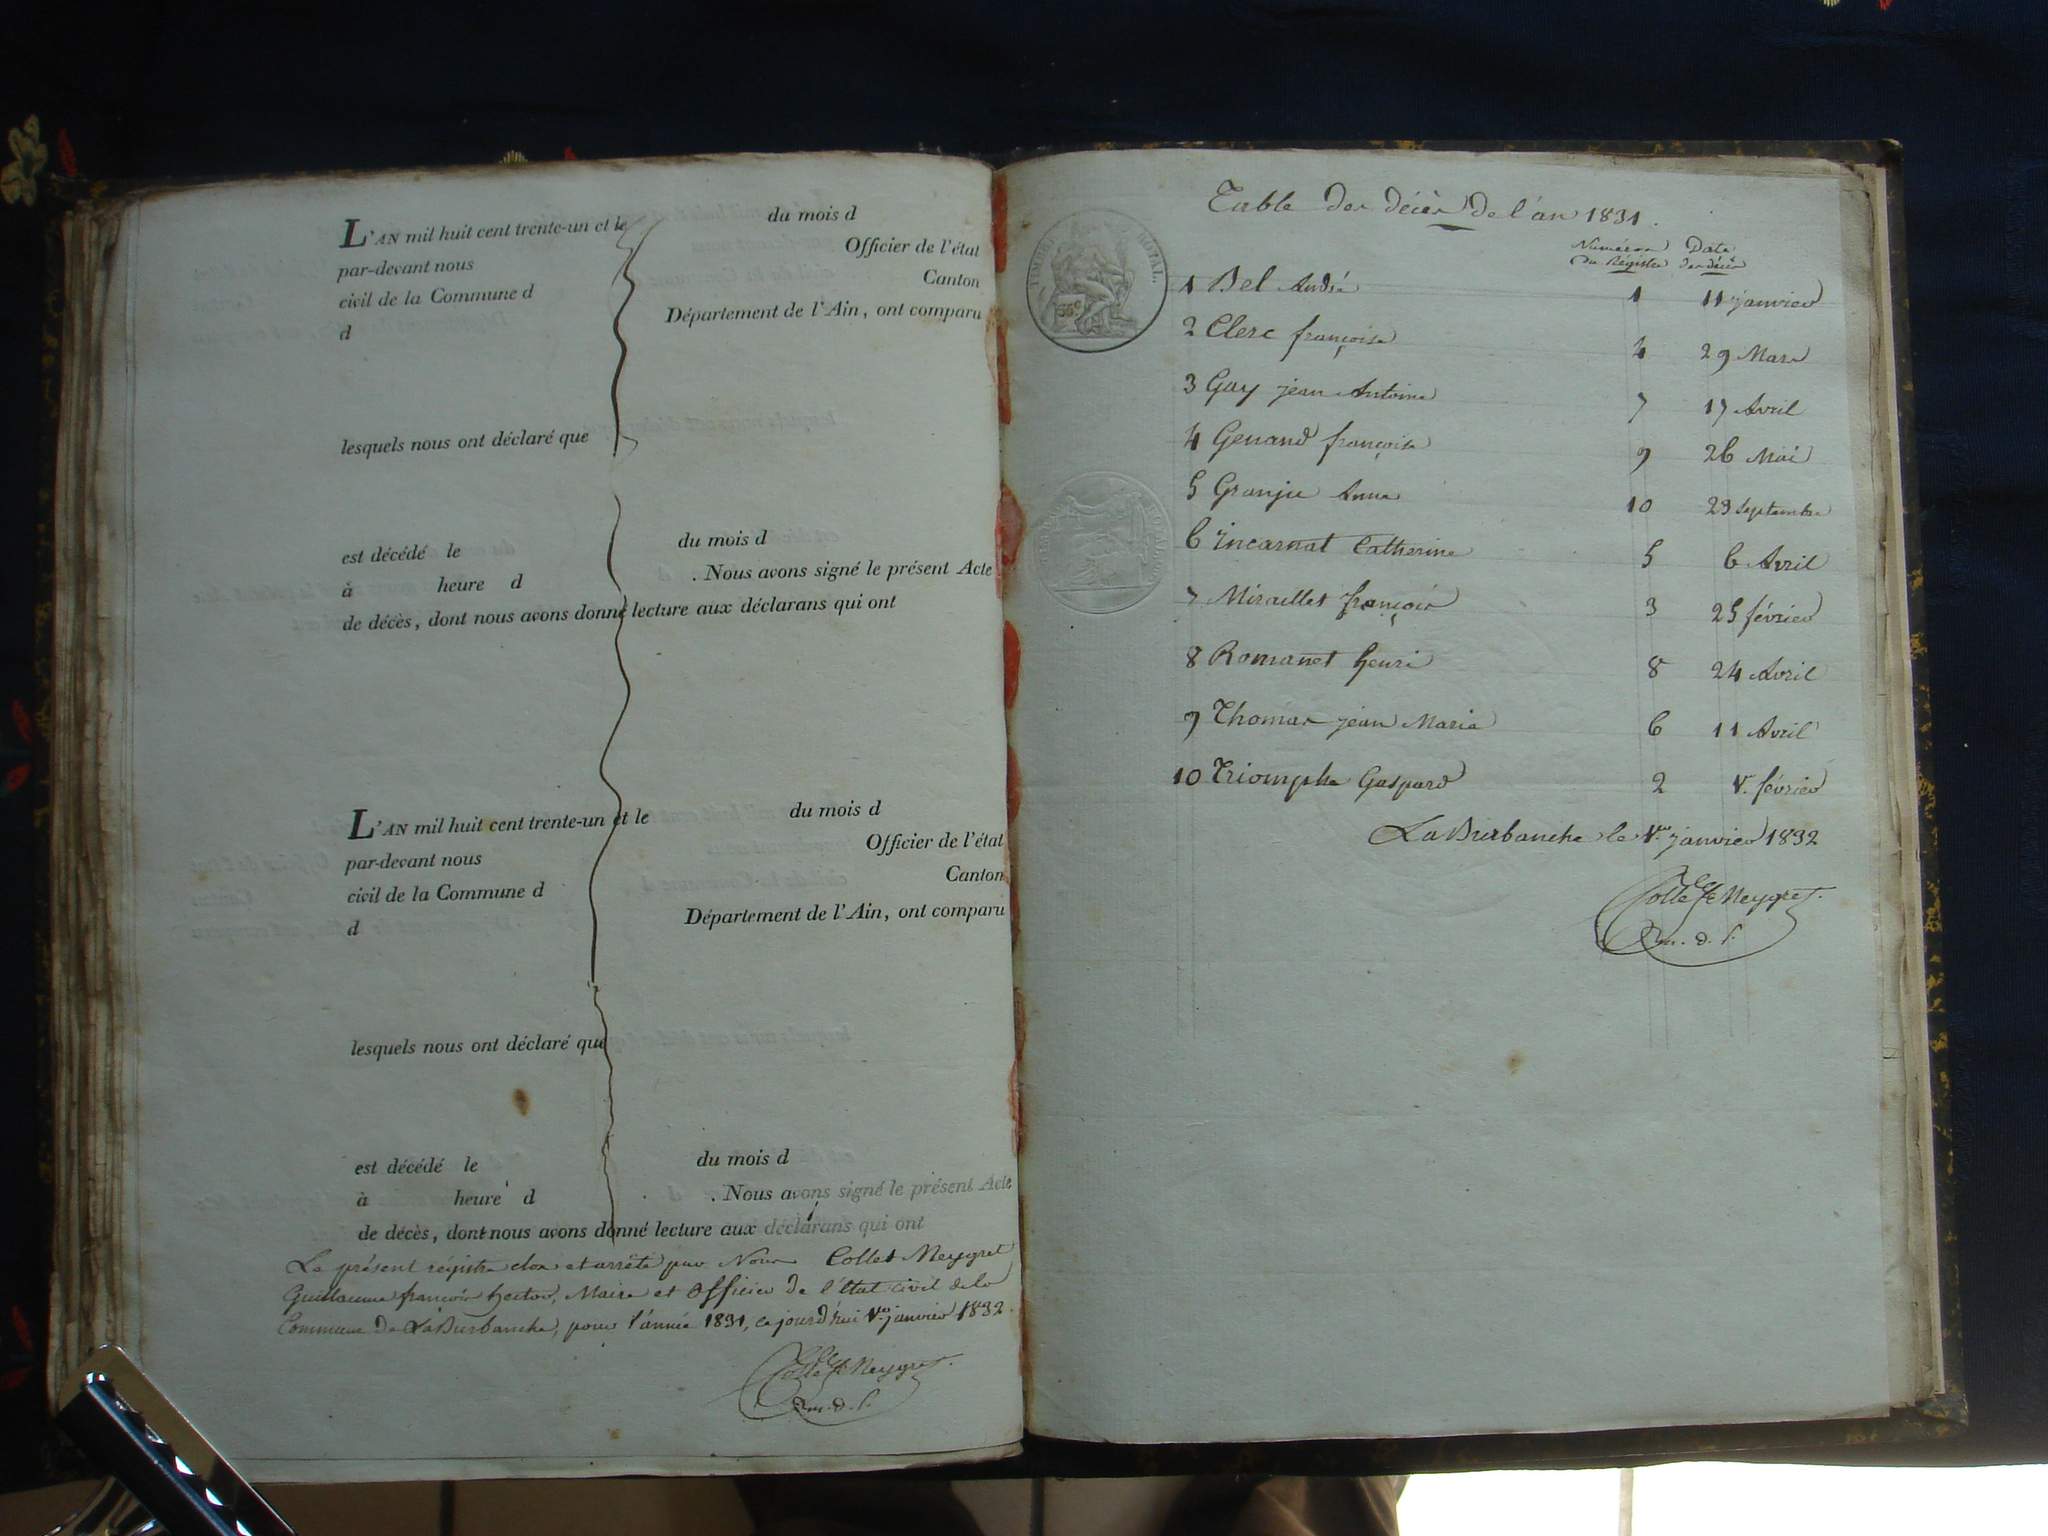 L'AN mil huit cent trente-un et le du mois d
par-devant nous Officier de l'état
civil de la Commune d Canton
d Département de l'Ain, ont comparu
lesquels nous ont déclaré que
est décédé le du mois d
à heure d . Nous avons signé le présent Acte
de décès, dont nous avons donné lecture aux déclarans qui ont
L'AN mil huit cent trente-un et le du mois d
par-devant nous Officier de l'état
civil de la Commune d Canton
d Département de l'Ain, ont comparu
lesquels nous ont déclaré que
est décédé le du mois d
à heure d . Nous avons signé le présent Acte
de décès, dont nous avons donné lecture aux déclarans qui ont
Le présent régistre clos et arrêté par Nous Collet Meygret
Guillaume françois hector, Maire et Officier de l'état civil de la
Commune de La Burbanche, pour l'année 1831, ce jourd'hui 1er janvier 1832.
Collet Meygret.
TIMBRE ROYAL.
35c
Table des décès de l'an 1831.
Numéros Date
du Régistre des décès
1 Bel André 1 11 janvier
2 Clerc françoise 4 29 Mars
3 Gay jean Antoine 7 17 Avril
4 Genand françoise 9 26 Mai
5 Granju Anne 10 23 septembre
6 Incarnat Catherine 5 6 Avril
7 Miraillet françois 3 25 février
8 Romanet henri 8 24 Avril
9 Thomas jean Marie 6 11 Avril
10 Triomphe Gaspard 2 1er février
La Burbanche le 1er janvier 1832
Collet Meygret.